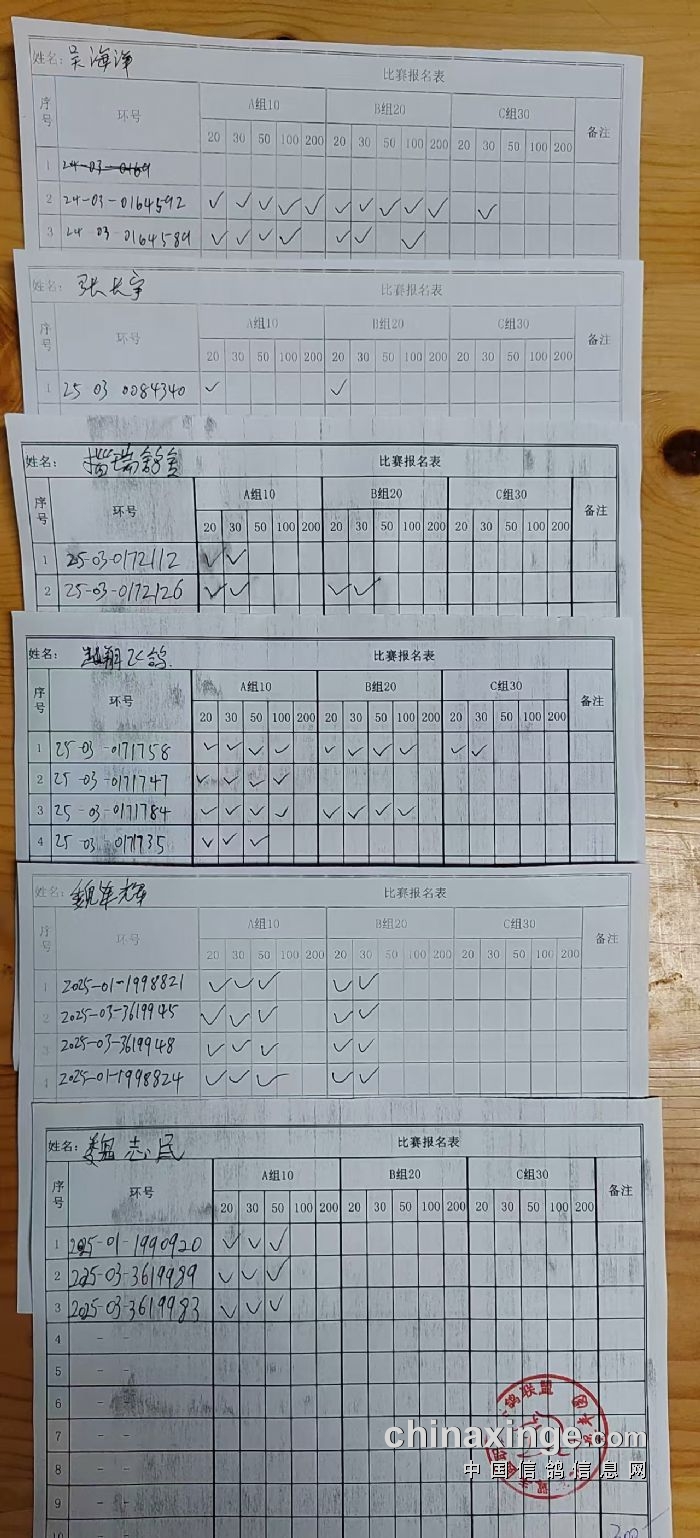 姓名: 吴海净 比赛报名表
序号 环号 A组10 B组20 C组30 备注
20 30 50 100 200 20 30 50 100 200 20 30 50 100 200
1 24-03-0169
2 24-03-0164592 ✓ ✓ ✓ ✓ ✓ ✓ ✓ ✓ ✓ ✓ ✓
3 24-03-0164589 ✓ ✓ ✓ ✓ ✓ ✓ ✓
张长宇 比赛报名表
序号 环号 A组10 B组20 C组30 备注
20 30 50 100 200 20 30 50 100 200 20 30 50 100 200
1 25 03 0084340 ✓ ✓
姓名: 瑞 比赛报名表
序号 环号 A组10 B组20 C组30 备注
20 30 50 100 200 20 30 50 100 200 20 30 50 100 200
1 25-03-0172112 ✓ ✓
2 25-03-0172126 ✓ ✓ ✓ ✓
姓名: 翔飞鸽 比赛报名表
序号 环号 A组10 B组20 C组30 备注
20 30 50 100 200 20 30 50 100 200 20 30 50 100 200
1 25-03-0171758 ✓ ✓ ✓ ✓ ✓ ✓ ✓ ✓ ✓ ✓
2 25-03-0171747 ✓ ✓ ✓ ✓
3 25-03-0171784 ✓ ✓ ✓ ✓ ✓ ✓ ✓ ✓
4 25-03 0171735 ✓ ✓ ✓
姓名: 魏军辉 比赛报名表
序号 环号 A组10 B组20 C组30 备注
20 30 50 100 200 20 30 50 100 200 20 30 50 100 200
1 2025-01-1998821 ✓ ✓ ✓ ✓ ✓
2 2025-03-3619945 ✓ ✓ ✓ ✓ ✓
3 2025-03-3619948 ✓ ✓ ✓ ✓ ✓
4 2025-01-1998824 ✓ ✓ ✓ ✓ ✓
姓名: 魏志民 比赛报名表
序号 环号 A组10 B组20 C组30 备注
20 30 50 100 200 20 30 50 100 200 20 30 50 100 200
1 2025-01-1990920 ✓ ✓ ✓
2 2025-03-3619989 ✓ ✓ ✓
3 2025-03-3619983 ✓ ✓ ✓
4 - -
5 - -
6 - -
7 - -
8 - -
9 - -
10 - -
鸽联盟
chinaxinge.com
中国信鸽信息网